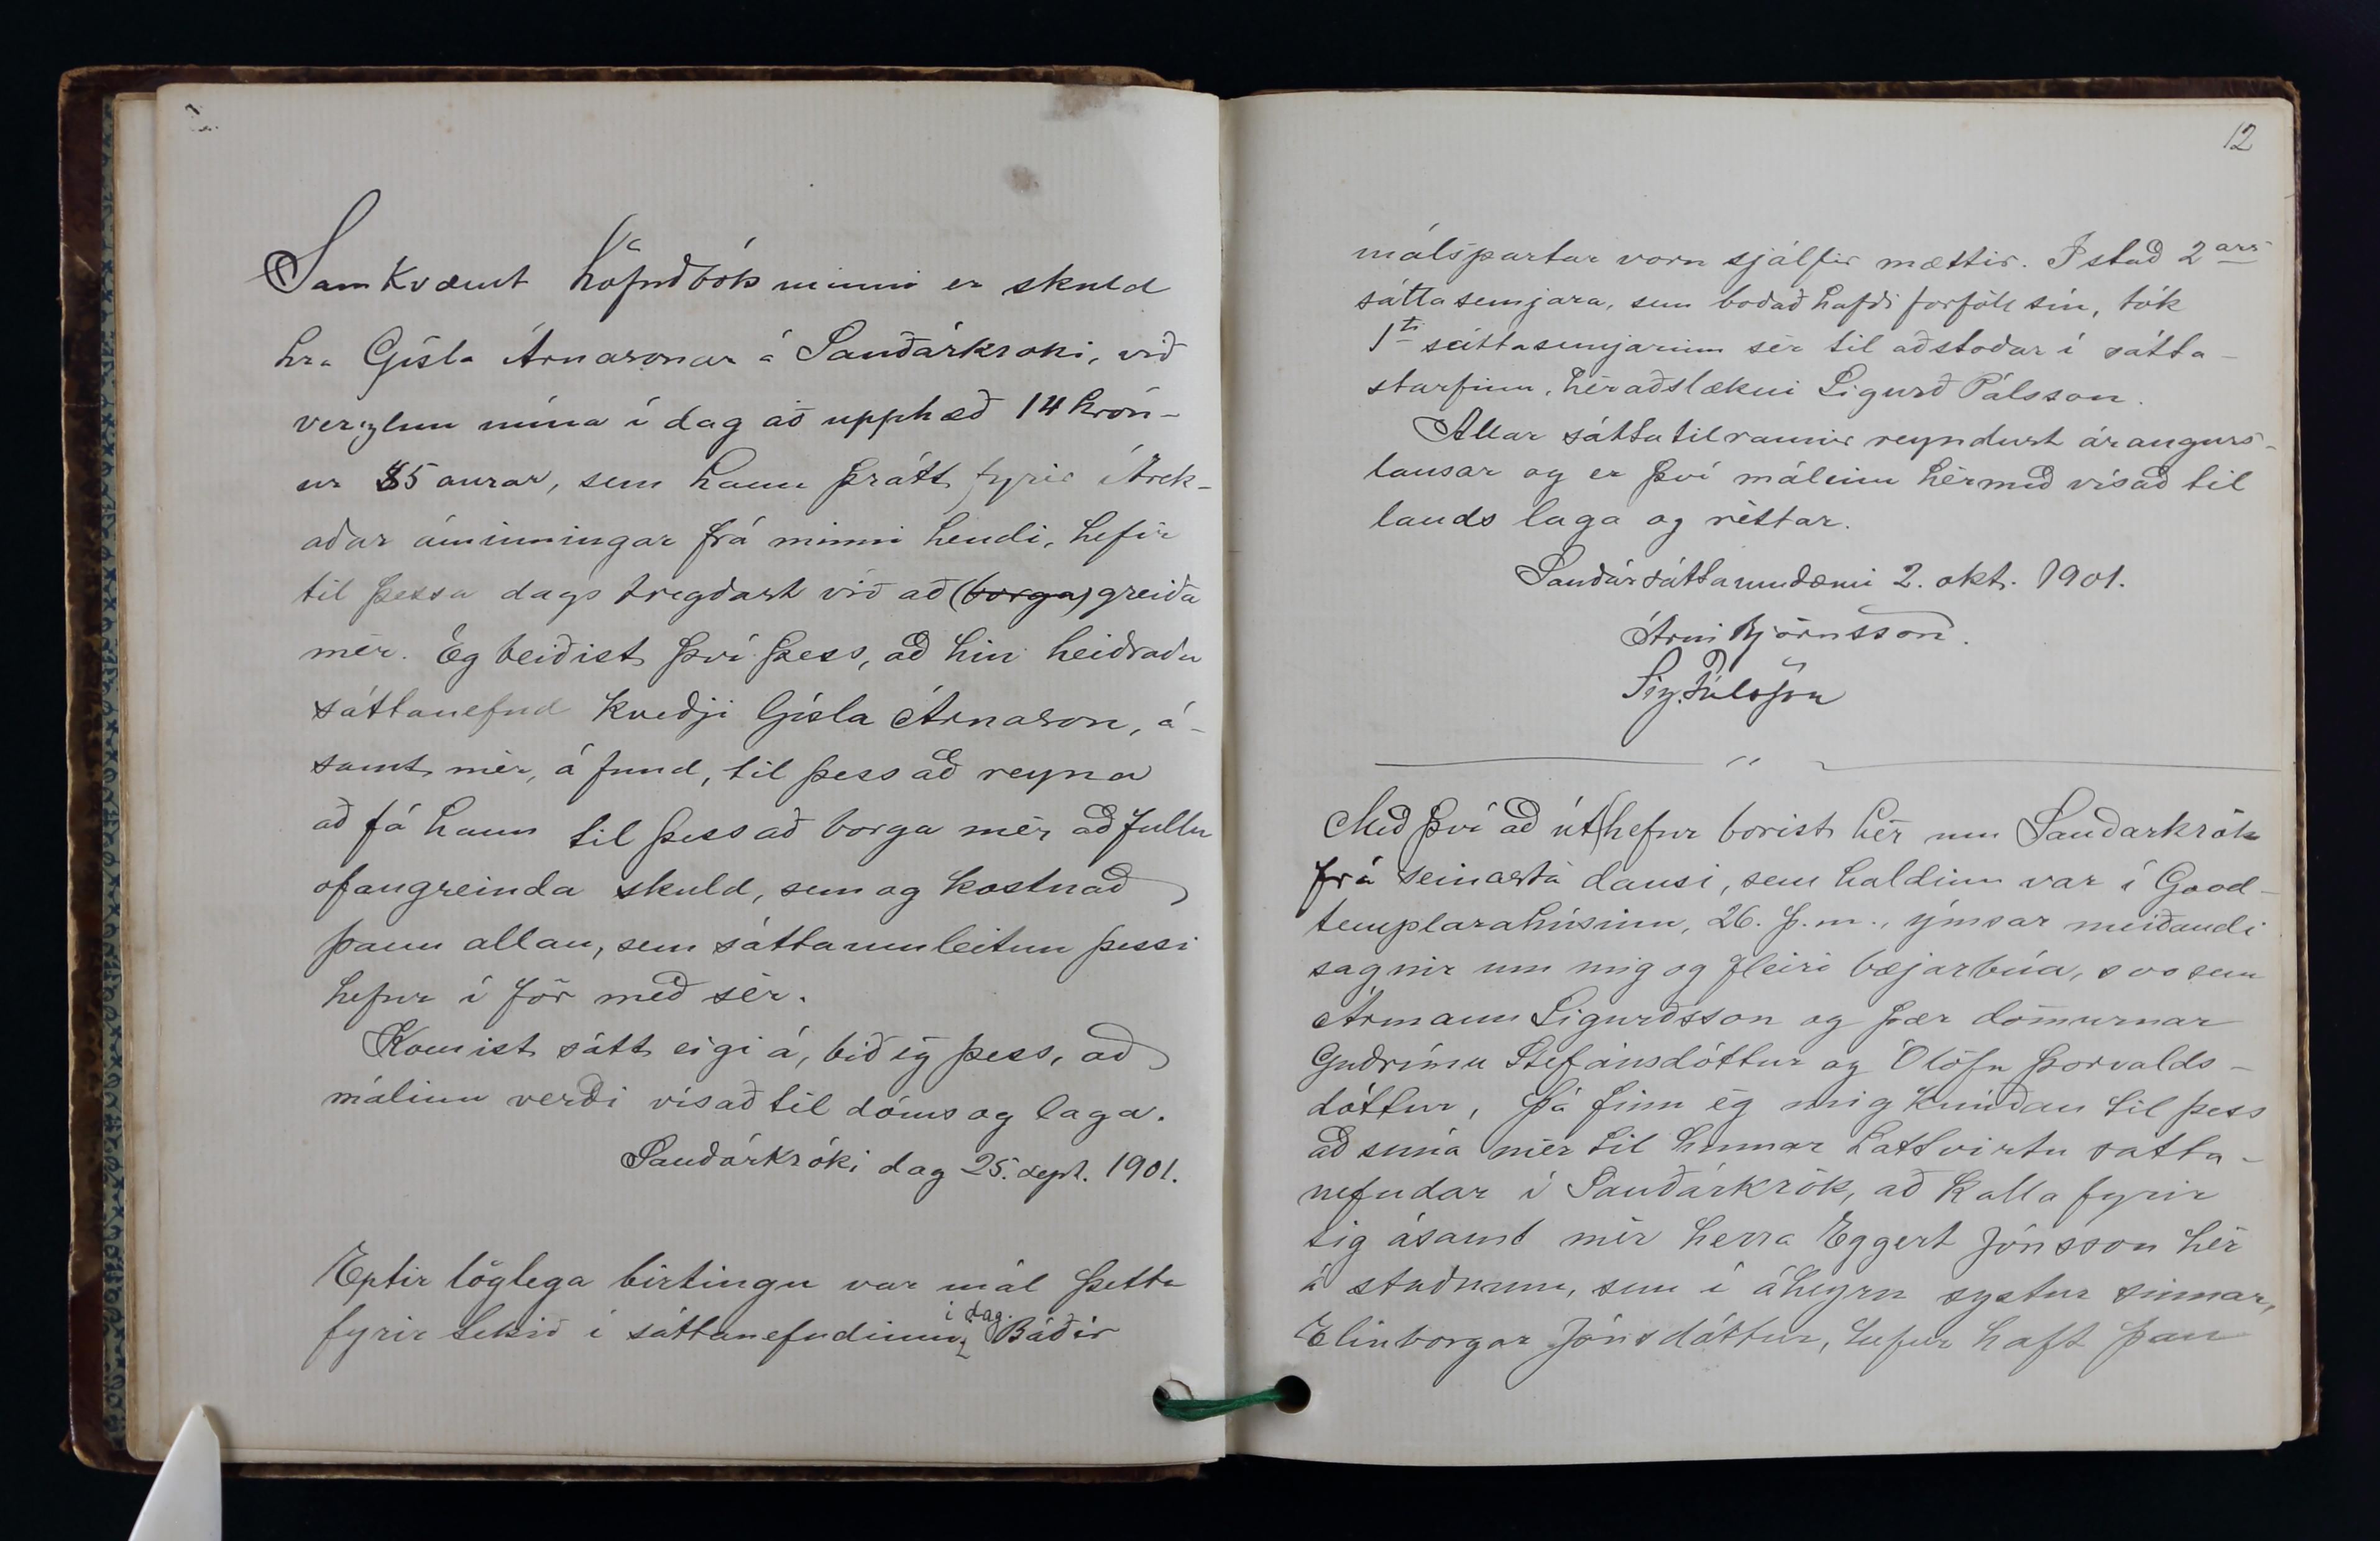 Samkvæmt höfuðbók minni er skuld
hra Gísla Árnasonar á Sauðárkroki, við
verzlun mína í dag að upphæð 14 krón-
ur 85 aurar, sem hann þrátt fyrir ítrek-
aðar áminningar frá minni hendi, hefir
til þessa dags tregðast við að (borga) greiða
mér. Ég beiðist því þess, að hin heiðraða
sáttanefnd kveðji Gísla Árnason, á-
samt mér, á fund, til þess að reyna
að fá hann til þess að borga mér að fullu
ofangreinda skuld, sem og kostnað
þann allan, sem sáttaumleitun þessi
hefur í för með sér.
Komist sátt eigi á, bið eg þess, að
málinu verði vísað til dóms og laga.
Sauðárkróki dag 25. sept. 1901.
Eptir löglega birtingu var mál þetta
i dag.
fyrir tekið í sáttanefndinni, Báðir
12
málspartar voru sjálfir mættir. Í stað 2ars
sáttasemjara, sem boðað hafði forföll sín, tók
1ti sáttasemjarinn sér til aðstoðar í sátta-
starfinu, héraðslækni Sigurð Pálsson.
Allar sáttatilraunir reyndust árangurs-
lausar og er því málinu hérmeð vísað til
lands laga og réttar.
Sauðársáttaumdæmi 2. okt. 1901.
Árni Björnsson.
Sig. Pálsson
Með því að út hefur borist hér um Sauðarkrók
frá seinasta dansi, sem haldinn var í Good-
templarahúsinu, 26. þ.m., ýmsar meiðandi
sagnir um mig og fleiri bæjarbúa, svo sem
Ármann Sigurðsson og þær dömurnar
Guðrúnu Stefánsdóttur og Ólöfu Þorvalds-
dóttur, þá finn ég mig knúðan til þess
að snúa mér til hinnar háttvirtu satta-
nefndar í Sauðárkrók, að kalla fyrir
sig ásamt mér herra Eggert Jónsson hér
á staðnum, sem í áheyrn systur sinnar,
Elinborgar Jónsdóttur, hefur haft þau